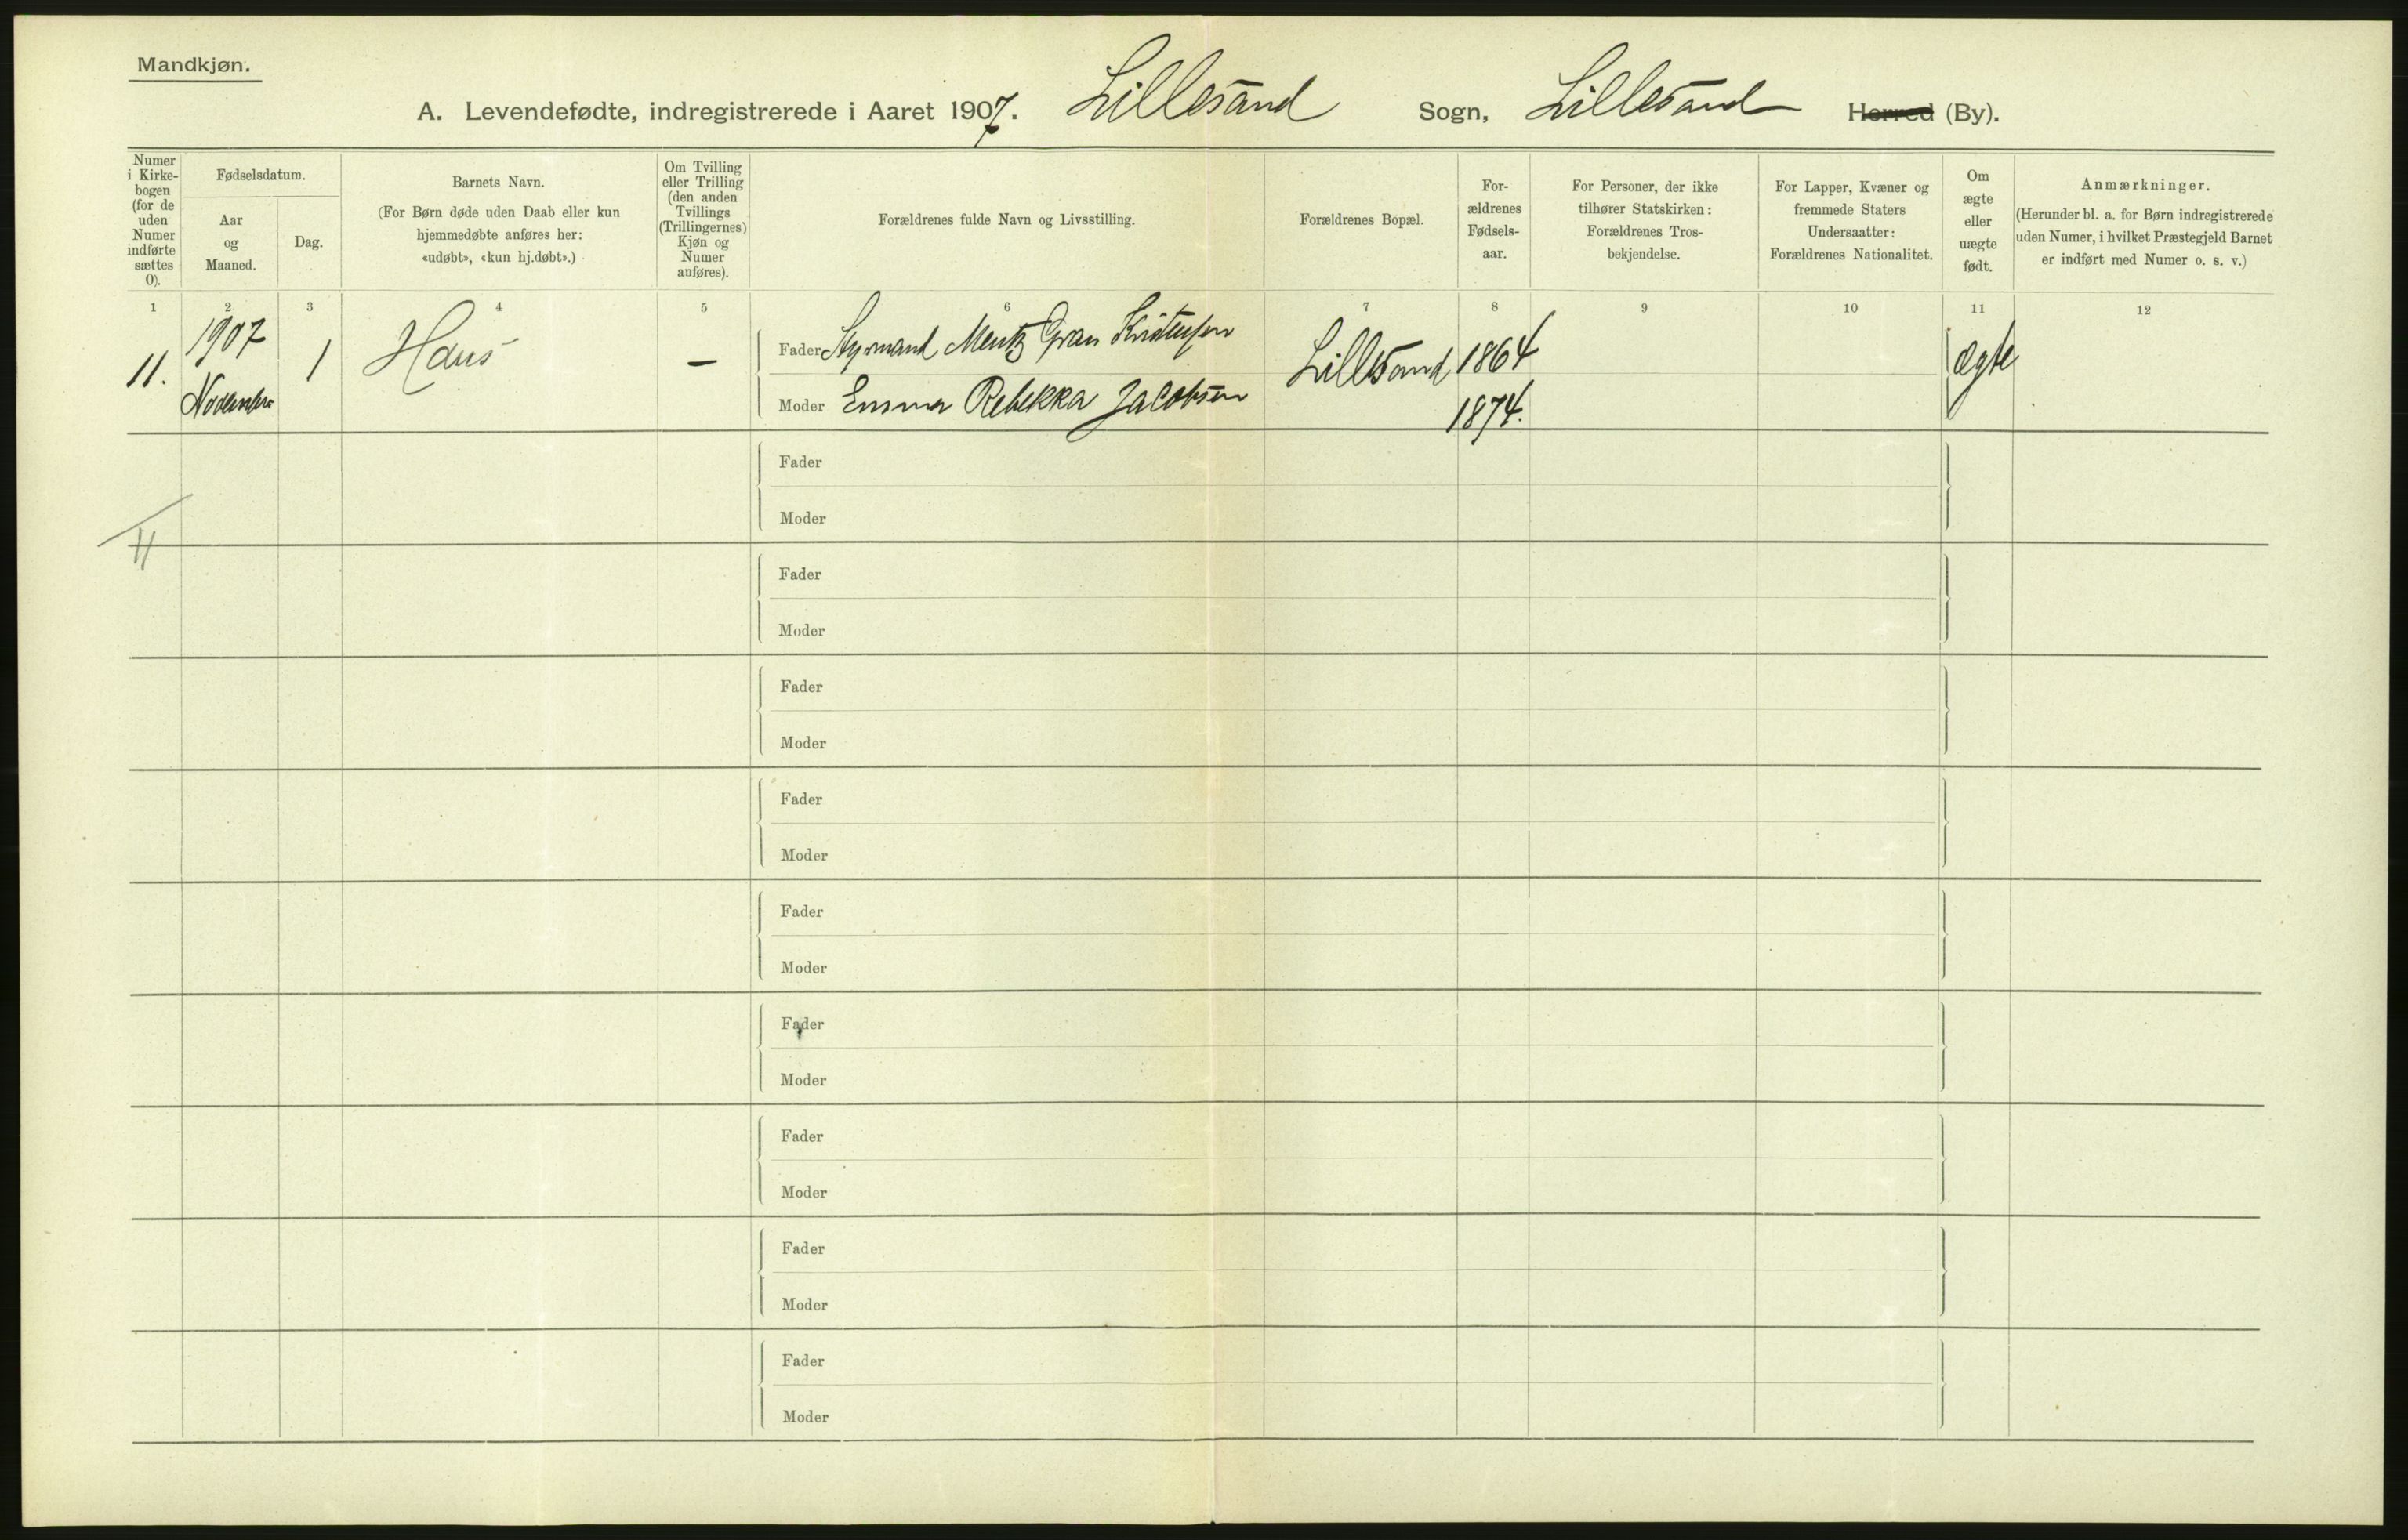 Mandkjøn.
A. Levendefødte, indregistrerede i Aaret 1907. Lillesand Sogn, Lillesand Herred (By).
Numer
i Kirke-
bogen
(for de
uden
Numer
indførte
sættes
0).
Fødselsdatum.
Aar
og
Maaned.
Dag.
Barnets Navn.
(For Børn døde uden Daab eller kun
hjemmedøbte anføres her:
«udøbt», «kun hj.døbt».)
Om Tvilling
eller Trilling
(den anden
Tvillings
(Trillingernes)
Kjøn og
Numer
anføres).
Forældrenes fulde Navn og Livsstilling.
Forældrenes Bopæl.
For-
ældrenes
Fødsels-
aar.
For Personer, der ikke
tilhører Statskirken:
Forældrenes Tros-
bekjendelse.
For Lapper, Kvæner og
fremmede Staters
Undersaatter:
Forældrenes Nationalitet.
Om
ægte
eller
uægte
født.
Anmærkninger.
(Herunder bl. a. for Børn indregistrerede
uden Numer, i hvilket Præstegjeld Barnet
er indført med Numer o. s. v.)
1 2 3 4 5 6 7 8 9 10 11 12
11. 1907 November 1 Hans — Fader Styrmand Mentz Gran Kristensen Lillesand 1864 ægte
Moder Emma Rebekka Jacobsen 1874.
Fader
Moder
11
Fader
Moder
Fader
Moder
Fader
Moder
Fader
Moder
Fader
Moder
Fader
Moder
Fader
Moder
Fader
Moder